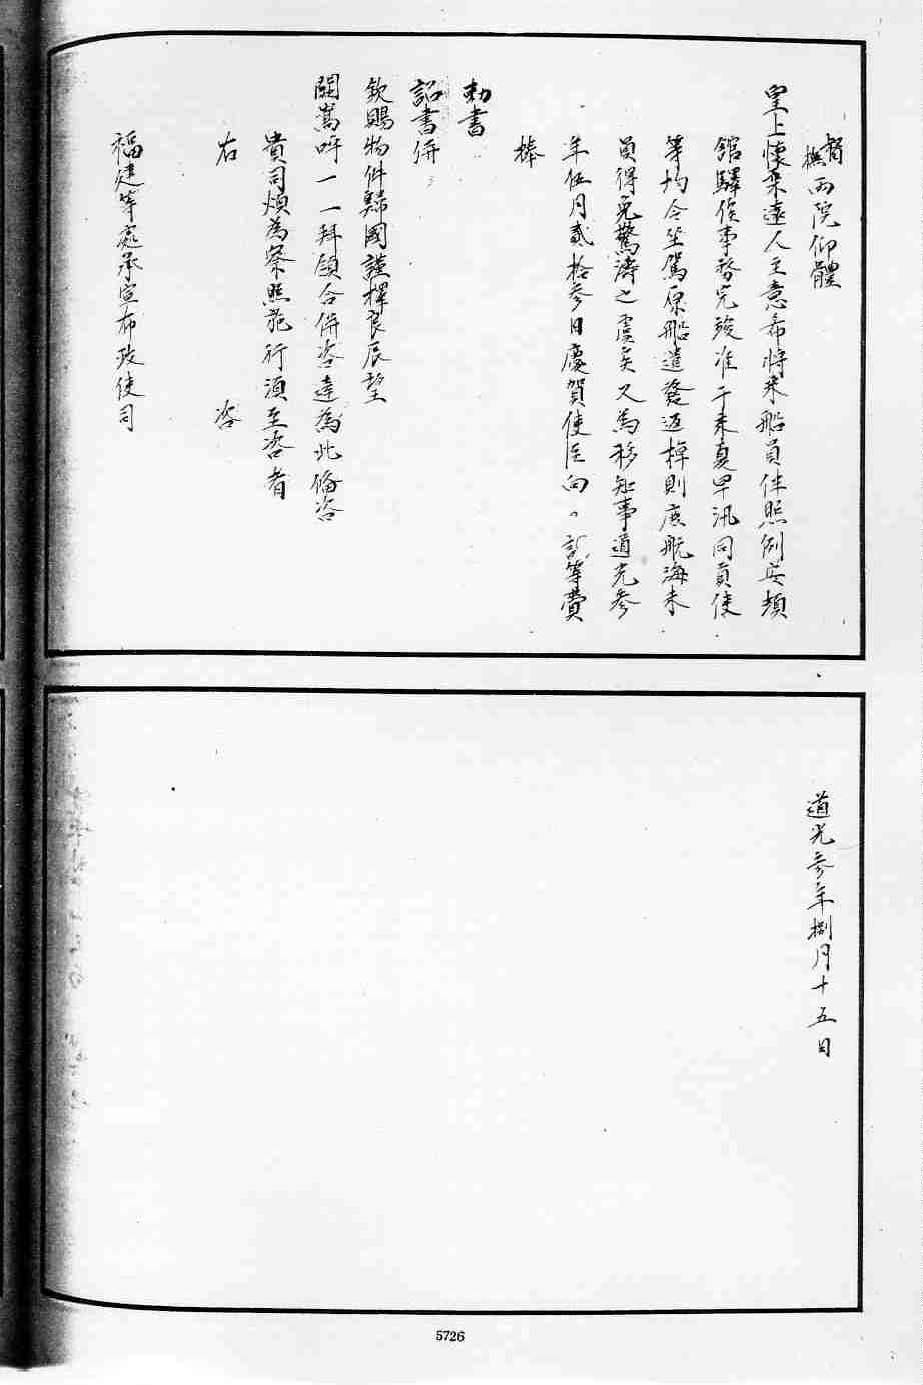 督撫兩院仰體
皇上懷柔遠人主意希將來船員伴照例安頓
館驛俟事務完竣准于來夏早汛同員使
等均令坐駕原船遣發返棹則庶航海末
員得免驚濤之虞矣又為移知事道光參
年伍月貳拾參日慶賀使臣向等費
捧
勅書
詔書併
欽賜物件歸國謹擇良辰望
闕嵩呼一一拜領合併咨達為此備咨
貴司煩為察照施行須至咨者
右 咨
福建等處承宣布政使司
道光參年捌月十五日
5726